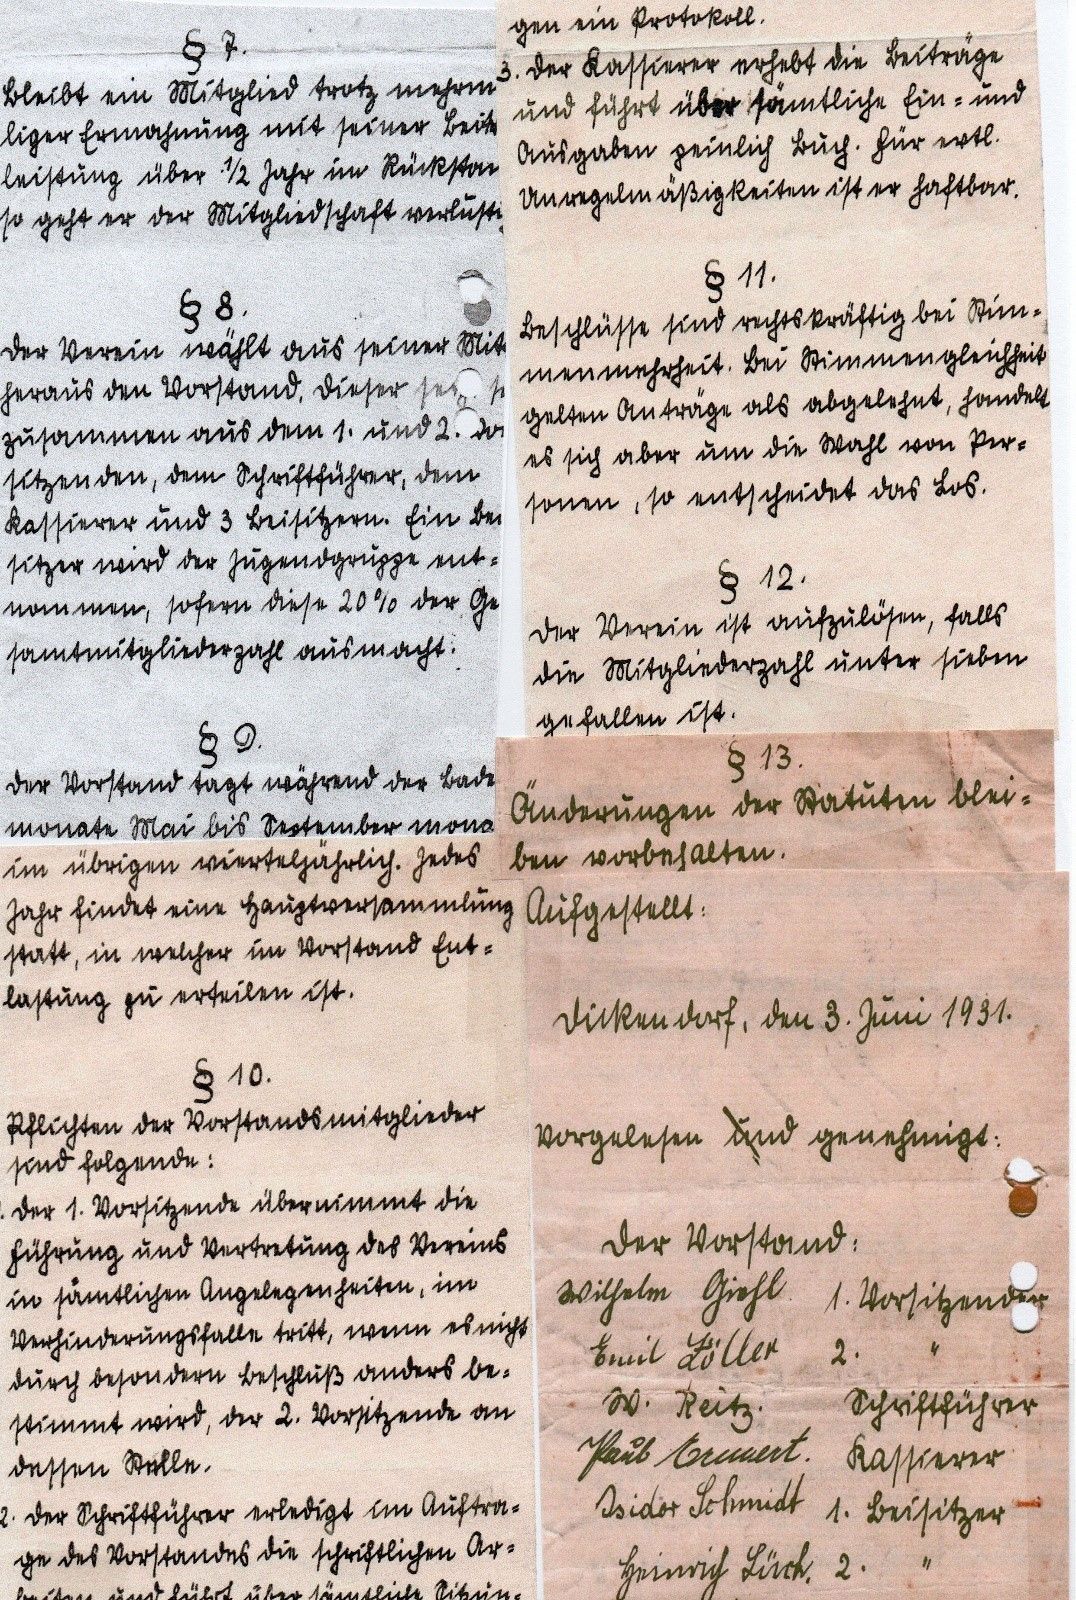 § 7.
Bleibt ein Mitglied trotz mehrm
liger Ermahnung mit seiner Beitr
leistung über 1/2 Jahr im Rückstan
so geht er der Mitgliedschaft verlusti
§ 8.
Der Verein wählt aus seiner Mitt
heraus den Vorstand. Dieser se
zusammen aus dem 1. und 2. Vor
sitzenden, dem Schriftführer, dem
Kassierer und 3 Beisitzern. Ein Bei
sitzer wird der Jugendgruppe ent-
nommen, sofern diese 20% der Ge
samtmitgliederzahl ausmacht.
§ 9.
Der Vorstand tagt während der Bade
monate Mai bis September mona
im übrigen vierteljährlich. Jedes
Jahr findet eine Hauptversammlung
statt, in welcher im Vorstand Ent-
lastung zu erteilen ist.
§ 10.
Pflichten der Vorstandsmitglieder
sind folgende:
1. Der 1. Vorsitzende übernimmt die
Führung und Vertretung des Vereins
in sämtlichen Angelegenheiten, im
Verhinderungsfalle tritt, wenn es nicht
durch besondern Beschluß anders be-
stimmt wird, der 2. Vorsitzende an
dessen Stelle.
2. Der Schriftführer erledigt im Auftra-
ge des Vorstandes die schriftlichen Ar-
beiten und führt über sämtliche Sitzun-
gen ein Protokoll.
3. Der Kassierer erhebt die Beiträge
und führt über sämtliche Ein- und
Ausgaben peinlich Buch. Für evtl.
Unregelmäßigkeiten ist er haftbar.
§ 11.
Beschlüsse sind rechtskräftig bei Stim-
menmehrheit. Bei Stimmengleichheit
gelten Anträge als abgelehnt, handelt
es sich aber um die Wahl von Per-
sonen, so entscheidet das Los.
§ 12.
Der Verein ist aufzulösen, falls
die Mitgliederzahl unter sieben
gefallen ist.
§ 13.
Änderungen der Statuten blei-
ben vorbehalten.
Aufgestellt:
Dickendorf, den 3. Juni 1931.
Vorgelesen und genehmigt:
Der Vorstand:
Wilhelm Giehl 1. Vorsitzender
Emil Zöller 2. "
W. Reitz. Schriftführer
Paul Kassierer
Isidor Schmidt 1. Beisitzer
Heinrich 2. "